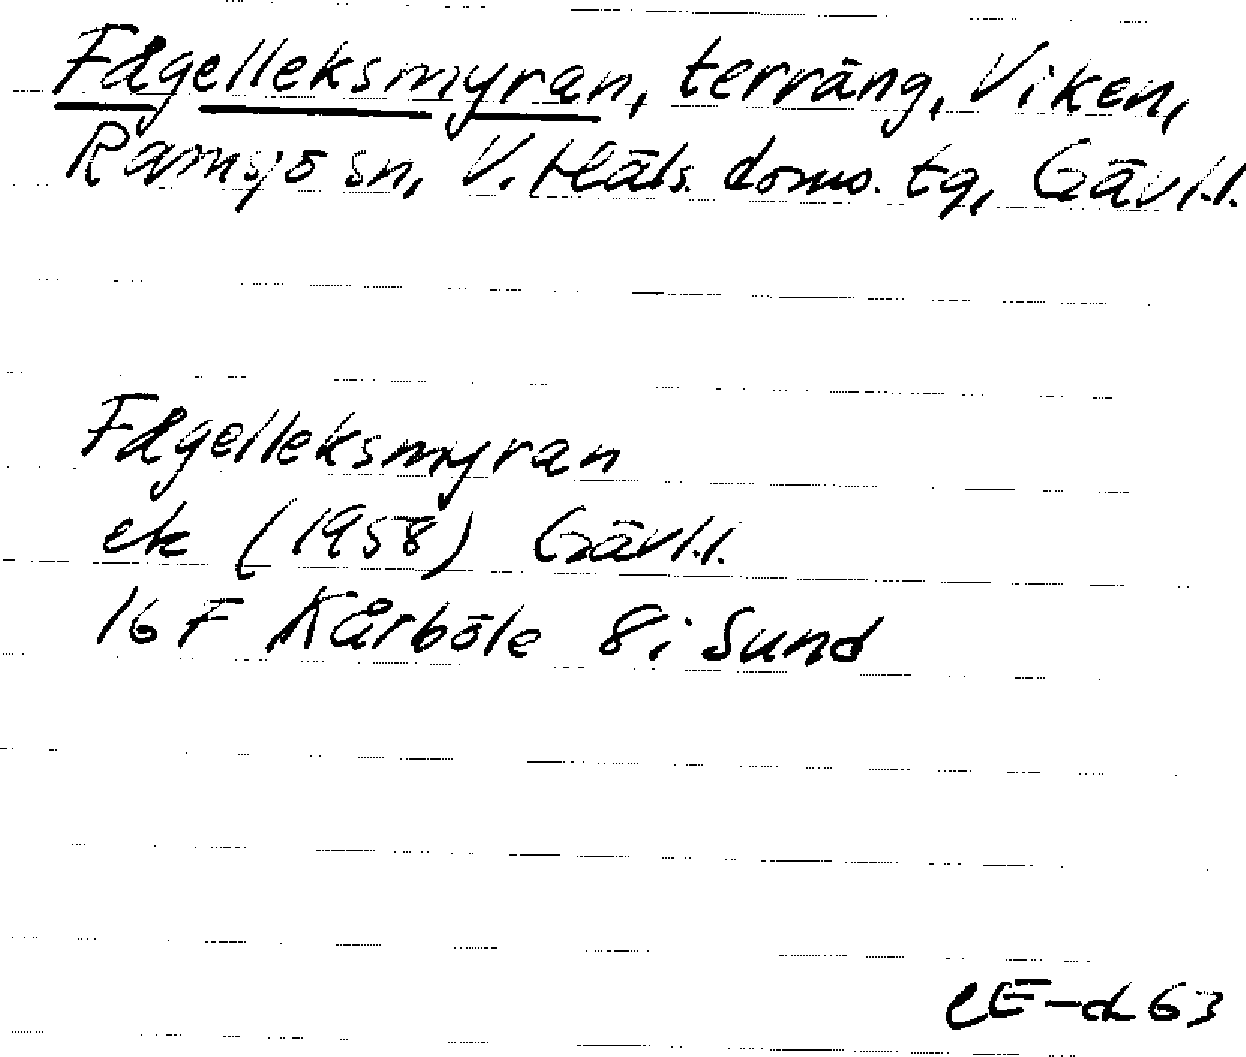 Fågelleksmyran, terräng, Viken,
Ramsjö sn, V. Häls. doms. tg, Gävl.l.
Fågelleksmyran
ek (1958) Gävl.l.
16 F Kårböle 8 i Sund
CE-d 63